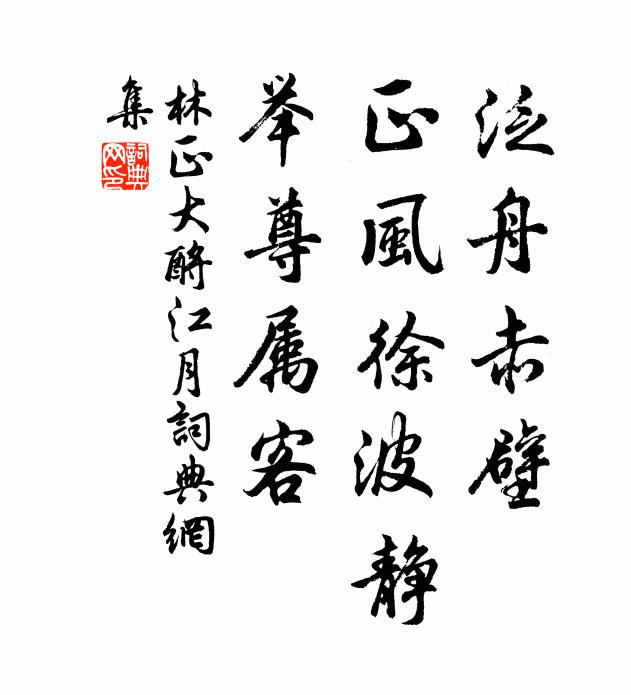 泛舟赤壁
正風徐波静
举尊属客
林正大酹江月詞典網
集
詞典網印